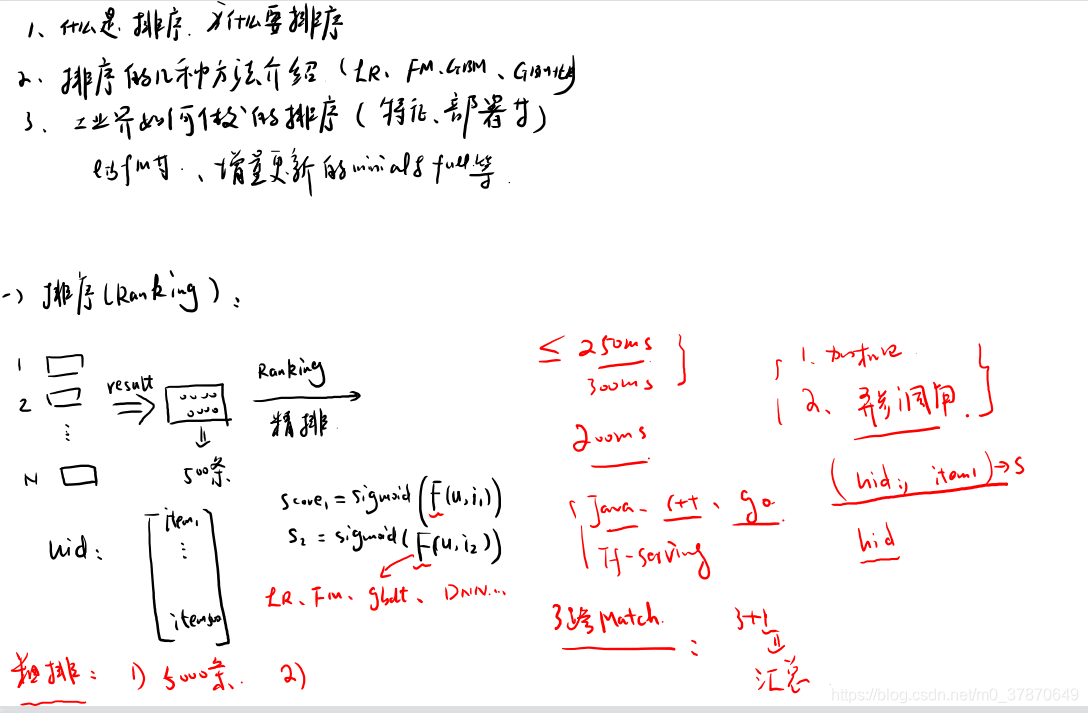 1、什么是排序、为什么要排序
2、排序的几种方法介绍 (LR、FM、GBM、
3、工业界如何做的排序 (特征、部署等)
、增量更新的 full等
一) 排序 (Ranking) :
1
2
⋮
N
result
500条
Ranking
精排
uid:
item1
⋮
item500
score1 = sigmoid (F(u, i1))
S2 = sigmoid (F(u, i2))
LR、FM、gbdt、DNN...
粗排: 1) 5000条. 2)
≤ 250ms
300ms
200ms
Java、c++、go
Tf-serving
3路Match. : 3+1
汇总
1.
2、异步调用.
(uid, item1)→S
uid
https://blog.csdn.net/m0_37870649